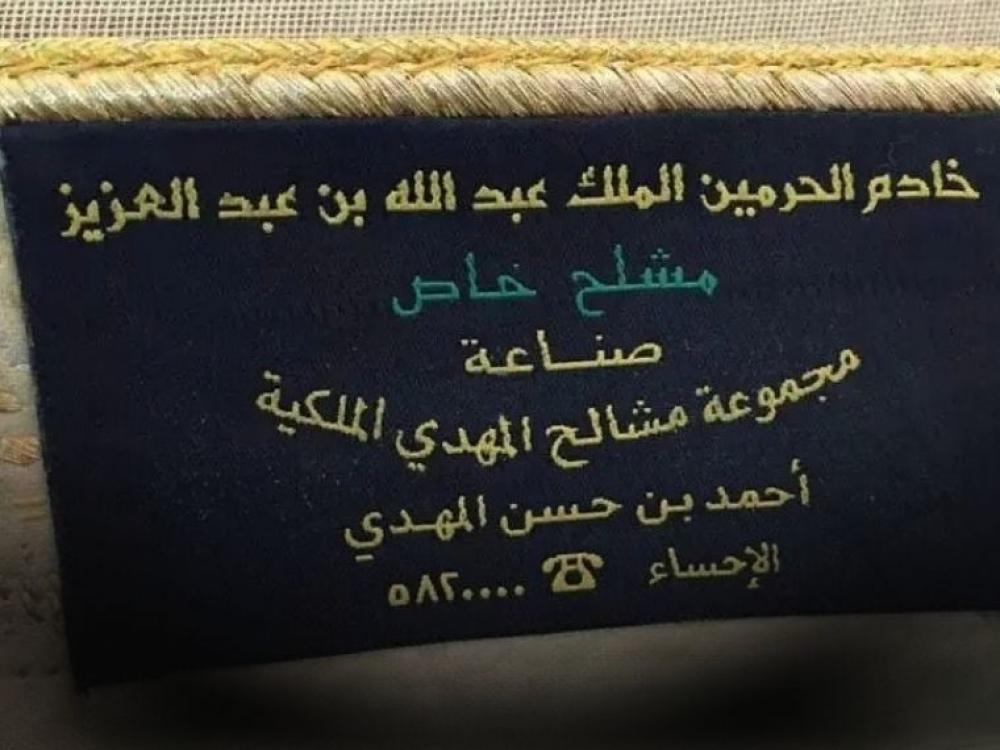 خادم الحرمين الملك عبد الله بن عبد العزيز
مشلح خاص
صناعة
مجموعة مشالح المهدي الملكية
أحمد بن حسن المهدي
الإحساء ☎ ٥٨٢٠٠٠٠